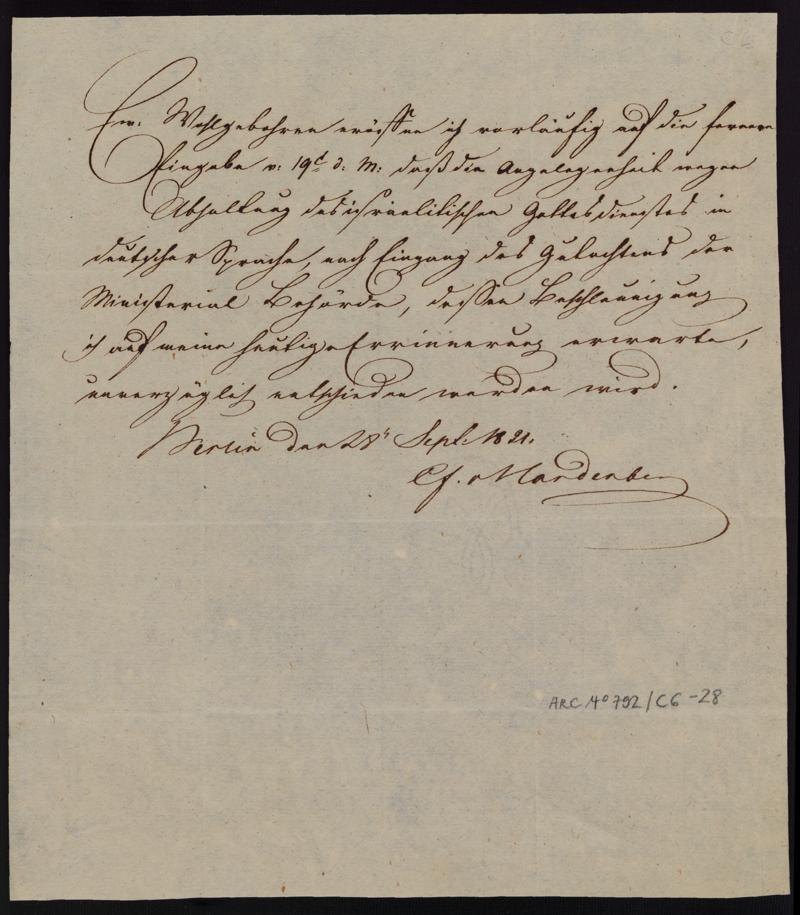 C6
Ew. Wohlgebohren eröffne ich vorläufig auf die fernere
Eingabe v: 19d d: M: daß die Angelegenheit wegen
Abhaltung des israelitischen Gottesdienstes in
deutscher Sprache, nach Eingang des Gutachtens der
Ministerial Behörde, dessen Beschleunigung
ich auf meine heutige Errinnerung erwarte,
unverzüglich entschieden werden wird.
Berlin den 28t Sept. 1821.
CF. v Hardenberg
ARC 4o 792/C6-28